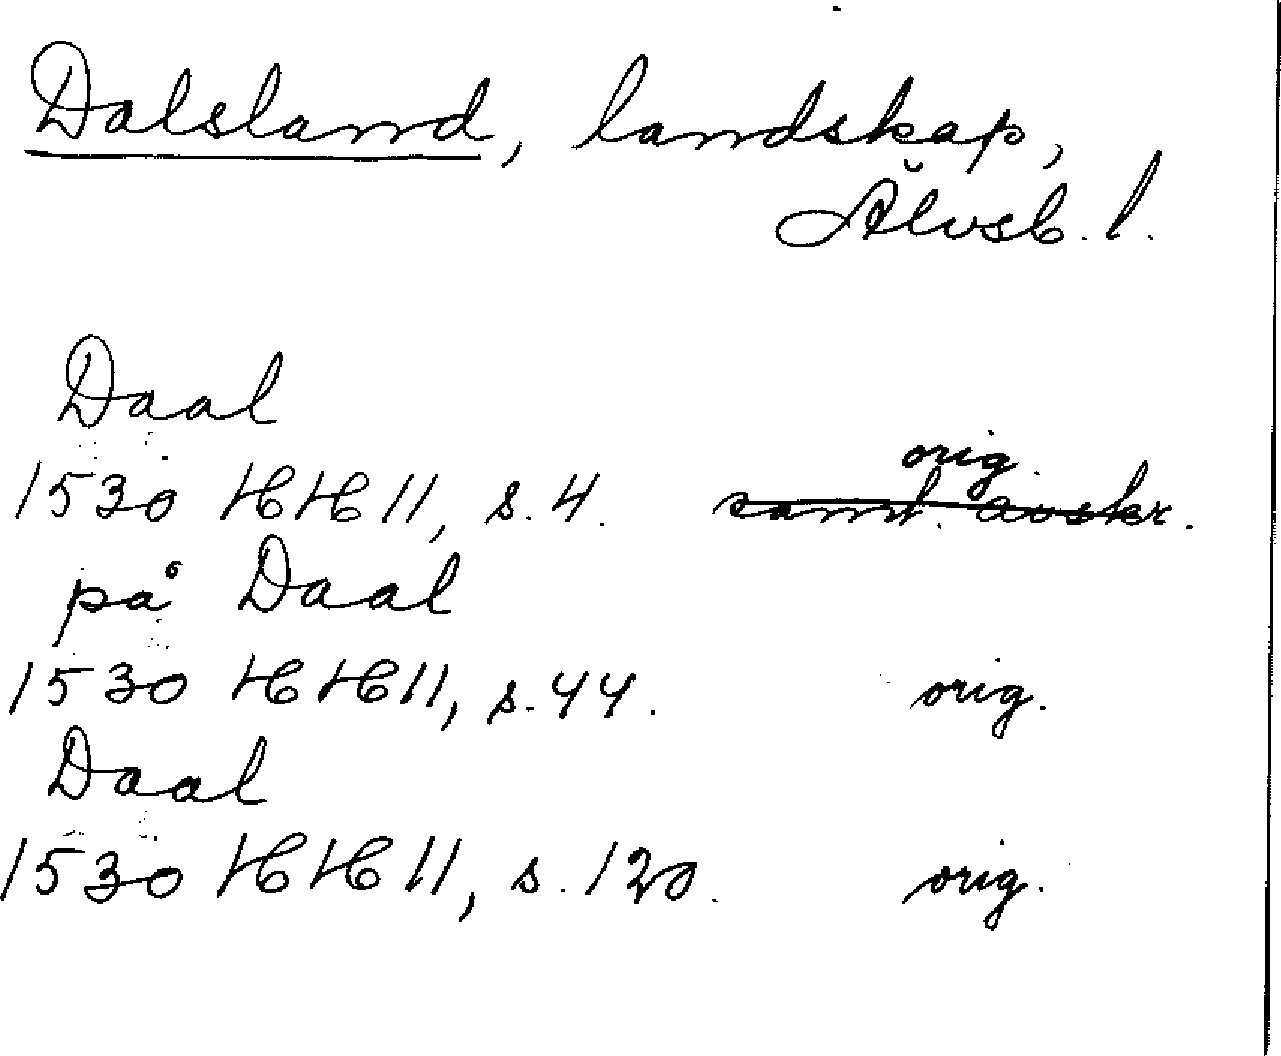 Dalsland, landskap,
Älvsb. l.
Daal
1530 HH 11, s. 4. orig. samt. avskr.
på Daal
1530 HH 11, s. 44. orig.
Daal
1530 HH 11, s. 120. orig.